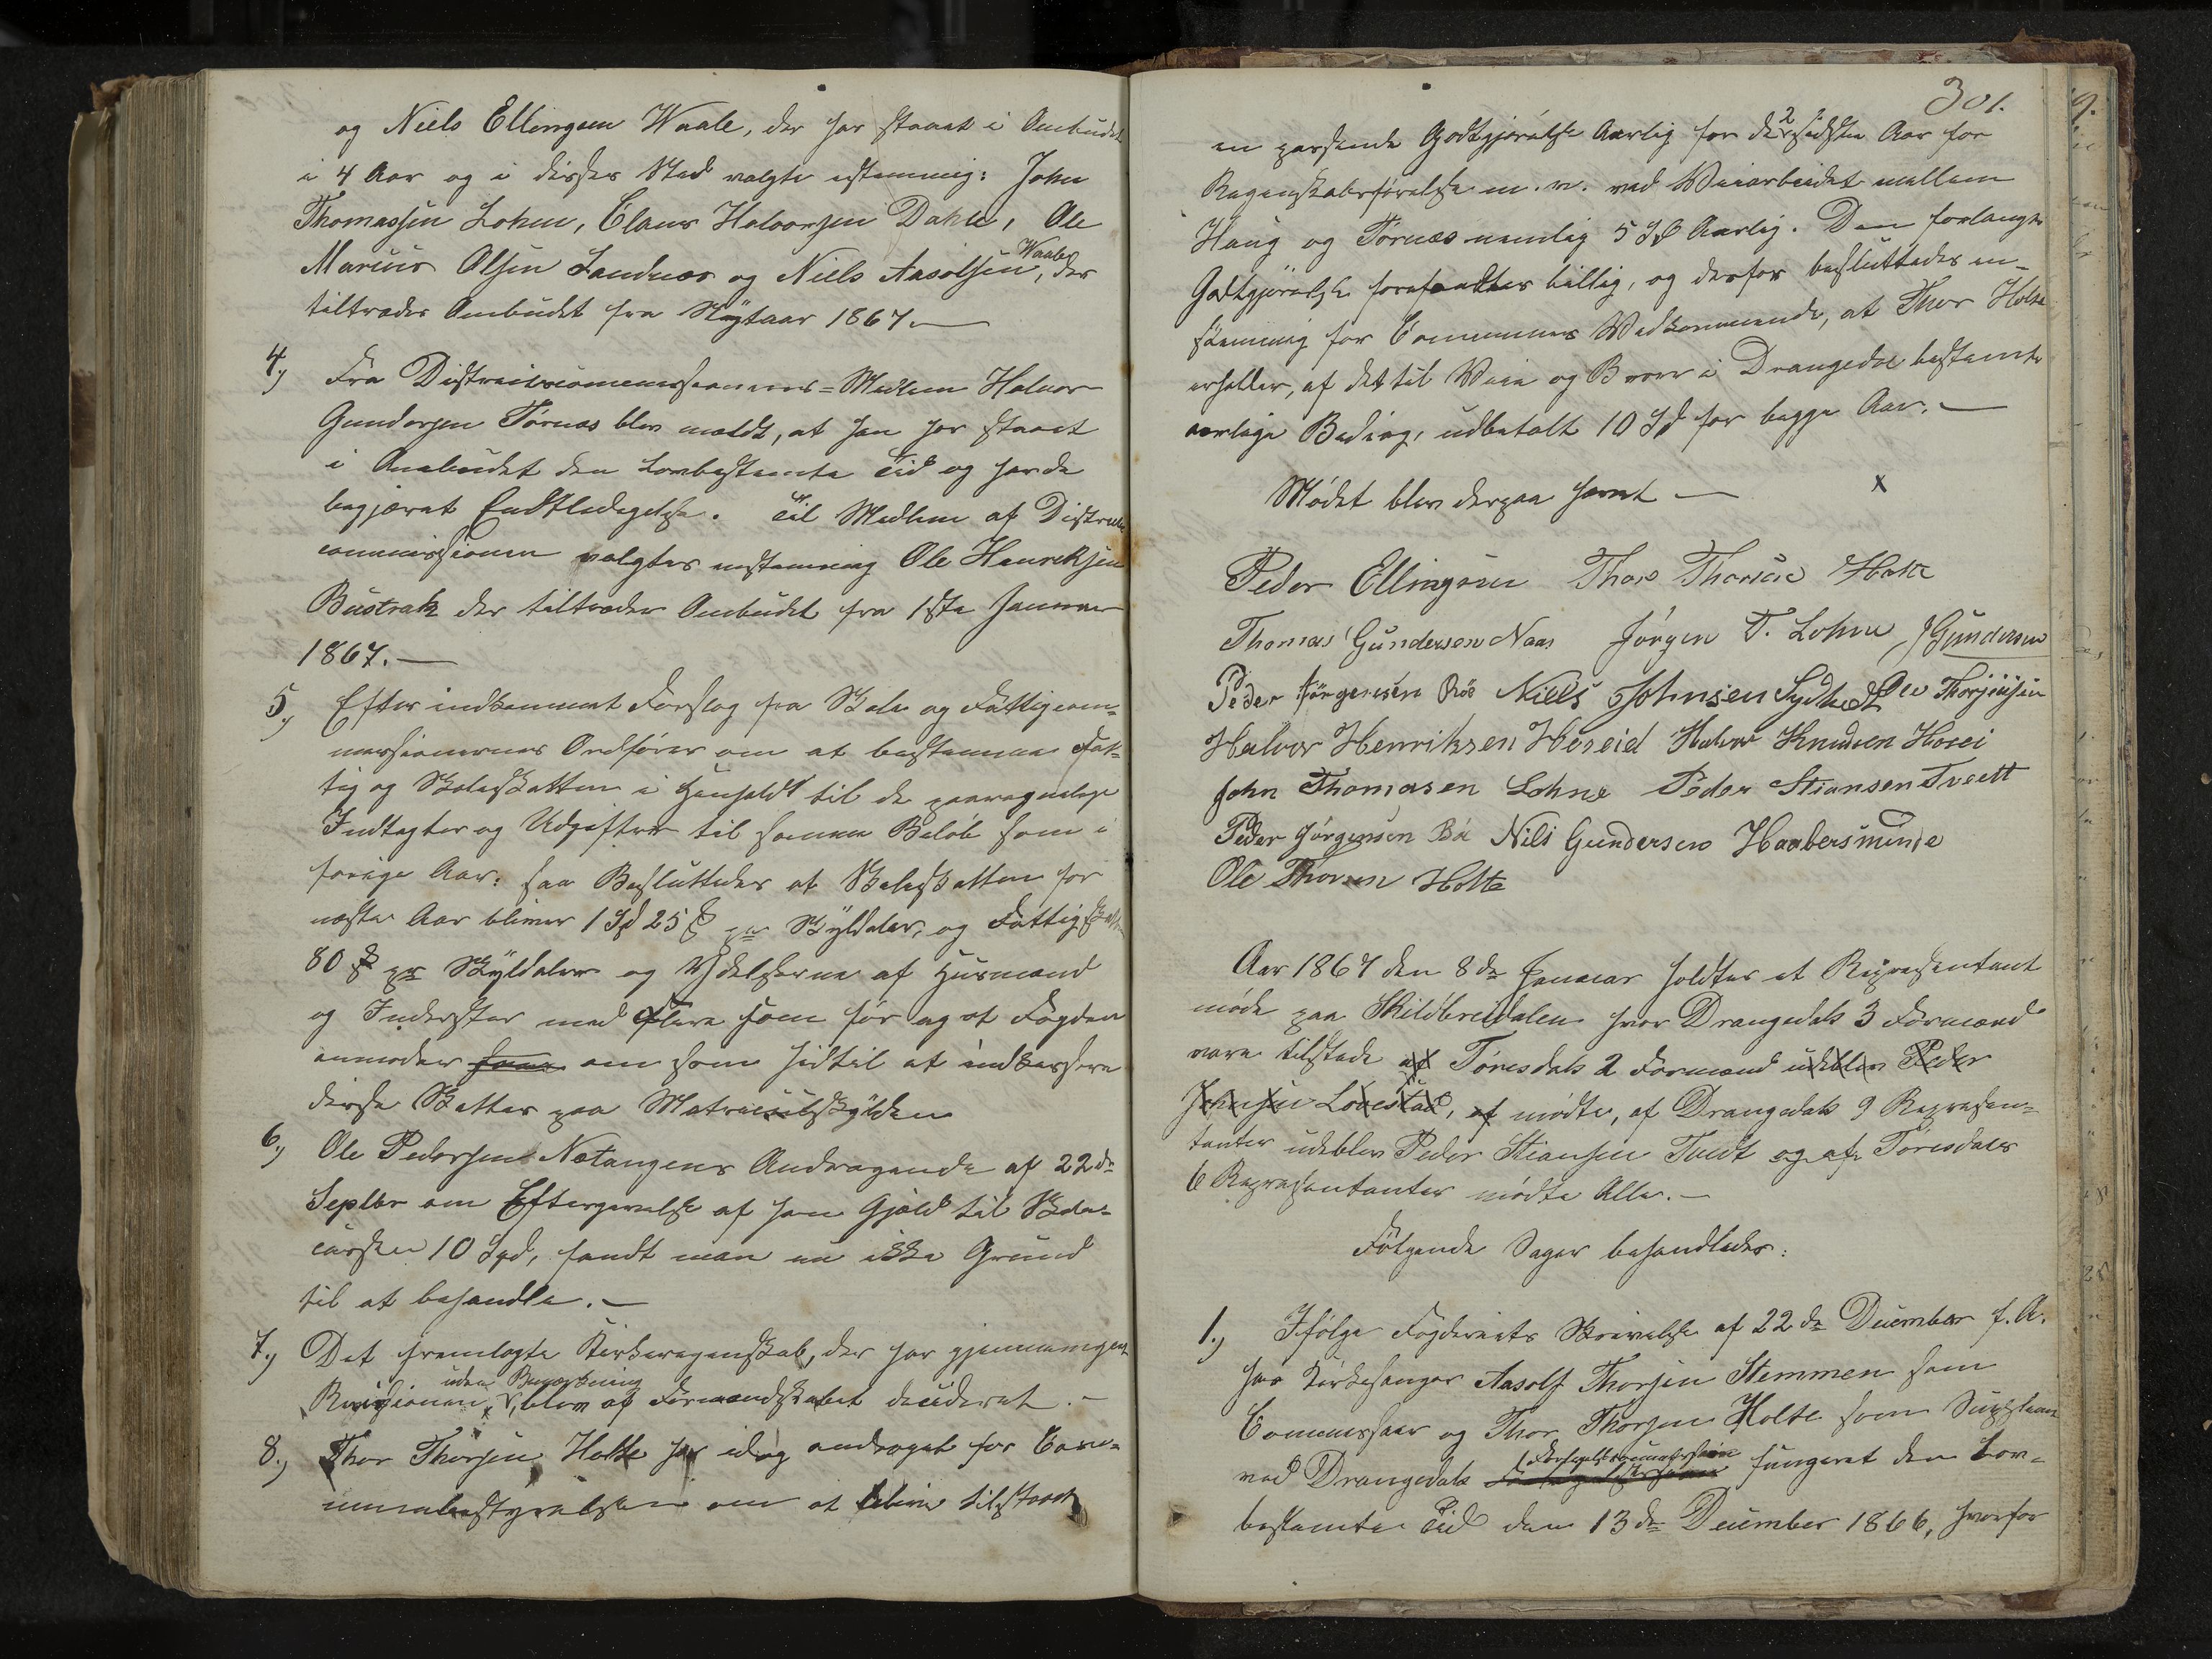 og Niels Ellingsen Waale, der har staaet i Ombudet
i 4 Aar og i disses Sted valgtes enstemmig: John
Thomassen Lohne, Claus Halvorsen Dahle, Ole
Marius Olsen Sandnæs og Niels Aasolfsen Waale, der
tiltræder Ombudet fra Nytaar 1867.—
4.) Fra Districtscommissionens-Medlem Halvor
Gundersen Tørnæs blev meldt, at han har staaet
i Ombudet den Lovbestemte Tid og havde
begjæret Endtledigelse. Til Medlem af Districts
commissionen valgtes enstemmig Ole Henriksen
Bustrak der tiltræder Ombudet fra 1ste Januar
1867.—
5.) Efter indkommet Forslag fra Skole og Fattigcom-
missionernes Ordfører om at bestemme Fat-
tig og Skoleskatten i Henhold til de paaregnelige
Indtægter og Udgifter til samme Beløb som i
forrige Aar: saa Besluttedes at Skoleskatten for
næste Aar bliver 1 Spd 25 ß pr Skyldaler, og Fattigskatten
80 ß pr Skyldaler og Ydelserne af Husmænd
og Inderster med Flere som før og at Fogden
anmodes om som hidtil at indkassere
disse Skatter paa Matriculskylden
6.) Ole Pedersen Nætangens Andragende af 22de
Septbr om Eftergivelse af hans Gjæld til Skole-
cassen 10 Spd, fandt man nu ikke Grund
til at behandle.—
7.) Det fremlagte Kirkeregnskab, der har gjennemgaaet
Revisionen uden Bemærkning, blev af Formandskabet decideret.—
8.) Thor Thorsen Holte har idag andraget for Com-
munebestyrelsen om at blive tilstaaet
301.
en passende Godtgjørelse Aarlig for de 2 sidste Aar for
Regnskabsførelse m. v. ved Veiarbeidet mellem
Haug og Tørnæs nemlig 5 Spd Aarlig. Den forlangte
Godtgjørelse forefandtes billig, og derfor besluttedes en-
stemmig for Communens Vedkommende, at Thor Holte
erholder, af det til Veie og Broer i Drangedal bestemte
aarlige Bidrag, udbetalt 10 Spd for begge Aar.—
Mødet blev derpaa hævet — x
Peder Ellingsen Thor Thorsen Holte
Thomas Gundersen Naas Jørgen T. Lohne J Gundersen
Peder Jørgensen Bøe Niels Johnsen Sydhedt Ole Thorjusen
Halvor Henriksen Heseid Halvor Knudsen Hosei
John Thomasen Lohne Peder Stiansen Tveitt
Peder Jørgensen Bö Nils Gundersen Haabersminde
Ole Thorsen Holte
Aar 1867 den 8de Januar holdtes et Repræsentant
møde paa Skildbreidalen hvor Drangedals 3 Formænd
vare tilstede af Tørisdals 2 Formænd udeblev Peder
Jensen Lovestad, mødte, af Drangedals 9 Repræsen-
tanter udeblev Peder Stiansen Tvedt og af Tørisdals
6 Repræsentanter mødte Alle.—
Følgende Sager behandledes:
1.) Ifølge Fogderiets Skrivelse af 22de December f. A.
har Kirkesanger Aasolf Thorsen Stemmen som
Commissær og Thor Thorsen Holte som Suppleant
ved Drangedals Forligelsescommission fungeret den Lov-
bestemte Tid den 13de December 1866, hvorfor